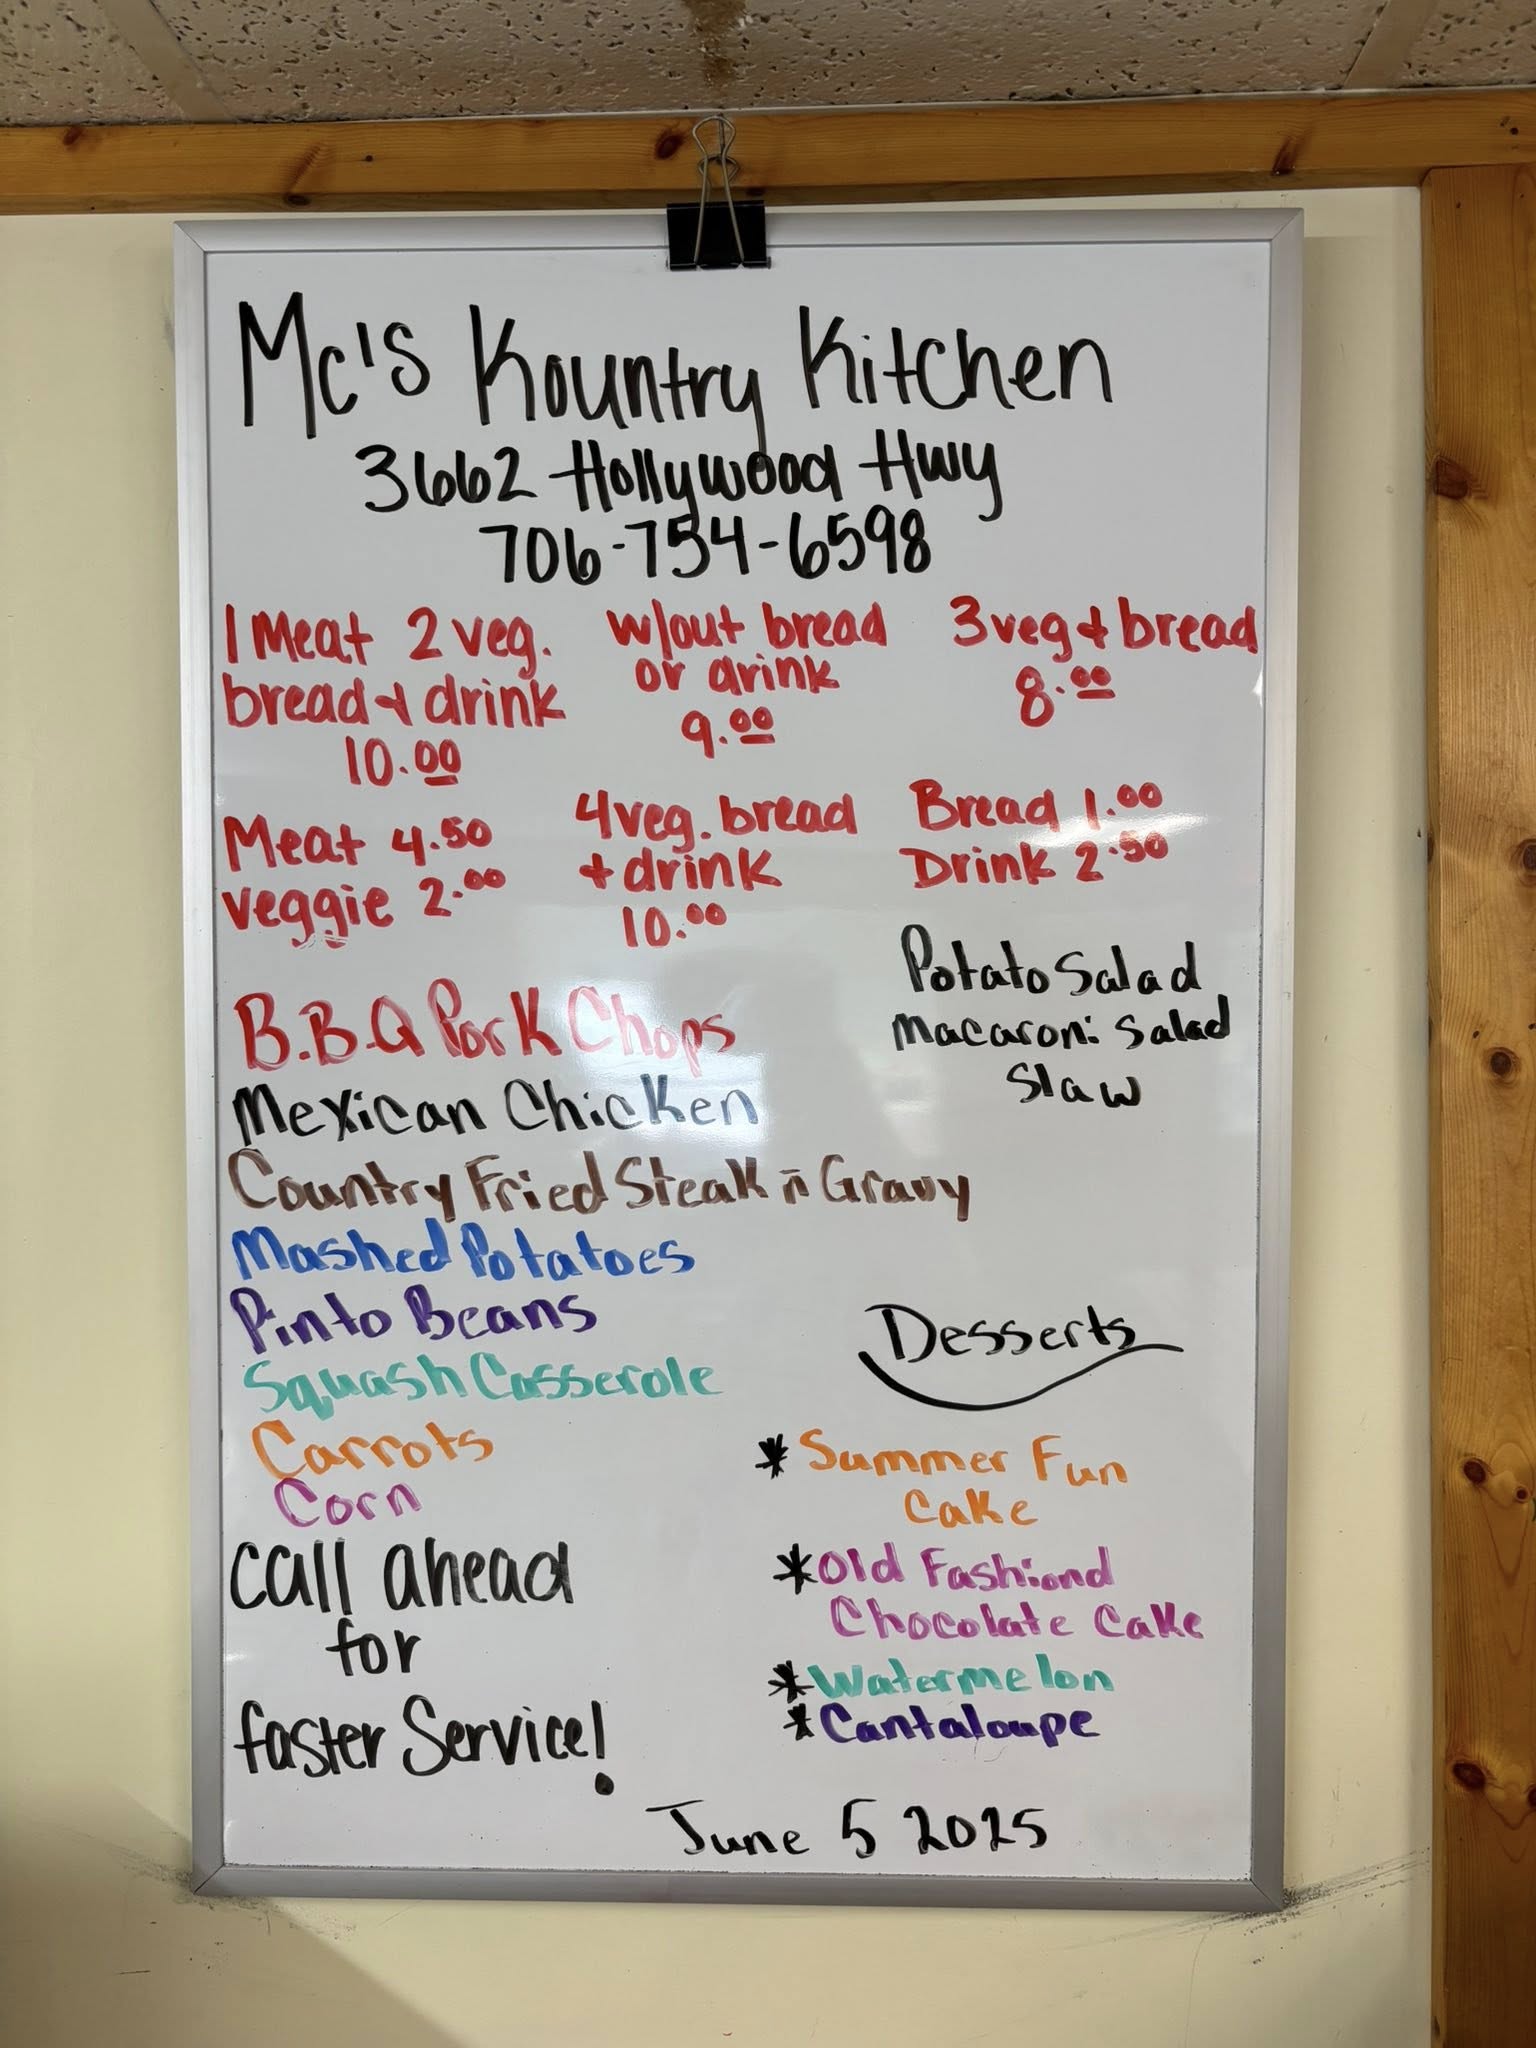 Mc's Kountry Kitchen
3662 Hollywood Hwy
706-754-6598
1 Meat 2 veg.
bread & drink
10.00
w/out bread
or drink
9.00
3 veg & bread
8.00
Meat 4.50
veggie 2.00
4 veg. bread
& drink
10.00
Bread 1.00
Drink 2.50
Potato Salad
Macaroni Salad
Slaw
B.B.Q Pork Chops
Mexican Chicken
Country Fried Steak n Gravy
Mashed Potatoes
Pinto Beans
Squash Casserole
Carrots
Corn
Call ahead
for
faster Service!
Desserts
* Summer Fun
Cake
* Old Fashiond
Chocolate Cake
* Watermelon
* Cantaloupe
June 5 2025